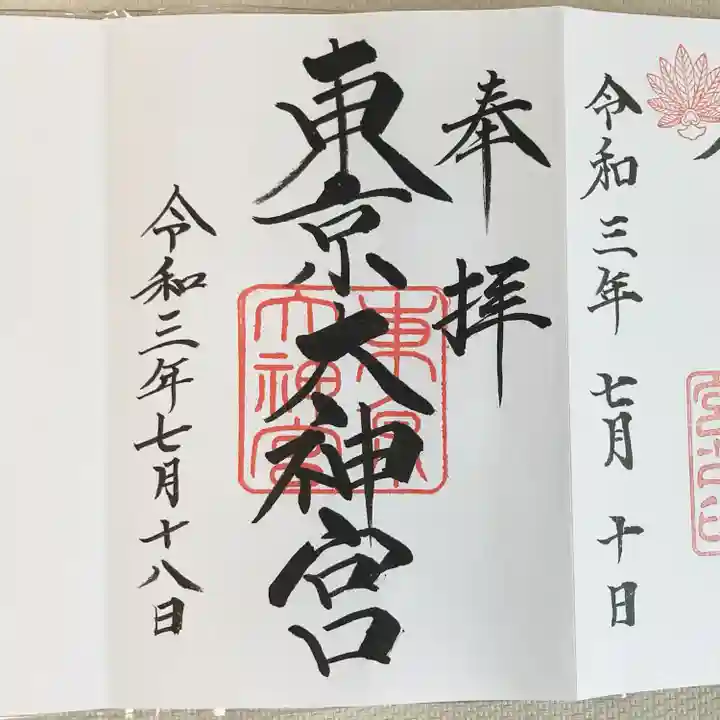 令和三年 七月 十日
奉拝
東京大神宮
東京
大神宮
令和三年七月十八日